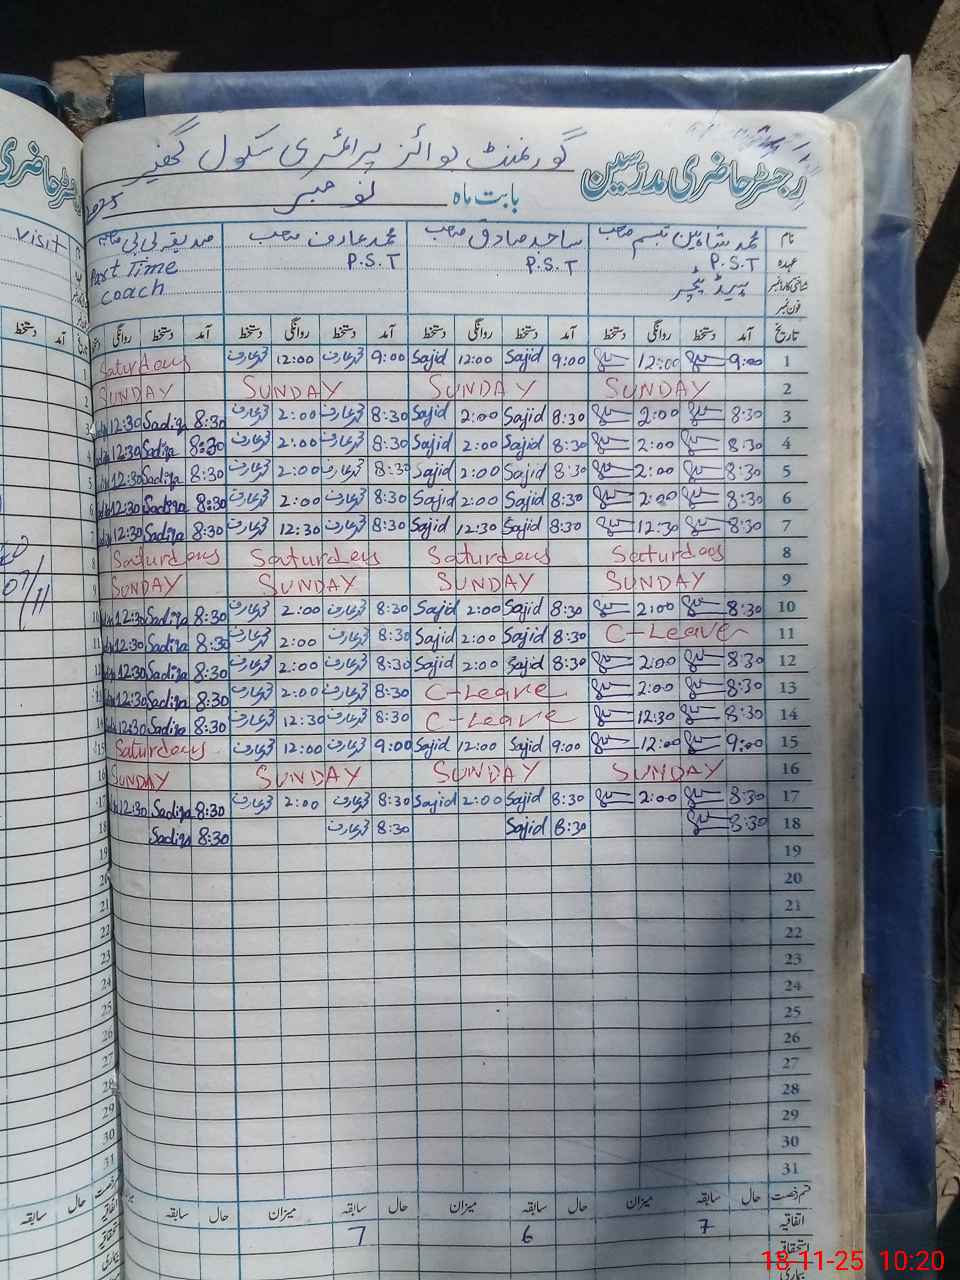 گورنمنٹ بوائز پرائمری سکول
رجسٹر حاضری مدرسین
بابت ماہ نومبر 2025
نام محمد شاہین تبسم صاحب ساجد صادق صاحب محمد عارف صاحب صدیقہ بی بی صاحبہ
عہدہ P.S.T P.S.T P.S.T Part Time
ہیڈ ٹیچر coach
فون نمبر
تاریخ آمد دستخط روانگی دستخط آمد دستخط روانگی دستخط آمد دستخط روانگی دستخط آمد دستخط روانگی
1 9:00 12:00 9:00 Sajid 12:00 Sajid 9:00 محمد عارف 12:00 محمد عارف Saturdays
2 SUNDAY SUNDAY SUNDAY SUNDAY
3 8:30 2:00 8:30 Sajid 2:00 Sajid 8:30 محمد عارف 2:00 محمد عارف 8:30 Sadiqa 12:30
4 8:30 2:00 8:30 Sajid 2:00 Sajid 8:30 محمد عارف 2:00 محمد عارف 8:30 Sadiqa 12:30
5 8:30 2:00 8:30 Sajid 2:00 Sajid 8:30 محمد عارف 2:00 محمد عارف 8:30 Sadiqa 12:30
6 8:30 2:00 8:30 Sajid 2:00 Sajid 8:30 محمد عارف 2:00 محمد عارف 8:30 Sadiqa 12:30
7 8:30 12:30 8:30 Sajid 12:30 Sajid 8:30 محمد عارف 12:30 محمد عارف 8:30 Sadiqa 12:30
8 Saturdays Saturdays Saturdays Saturdays
9 SUNDAY SUNDAY SUNDAY SUNDAY
10 8:30 2:00 8:30 Sajid 2:00 Sajid 8:30 محمد عارف 2:00 محمد عارف 8:30 Sadiqa 12:30
11 C-Leave 8:30 Sajid 2:00 Sajid 8:30 محمد عارف 2:00 محمد عارف 8:30 Sadiqa 12:30
12 8:30 2:00 8:30 Sajid 2:00 Sajid 8:30 محمد عارف 2:00 محمد عارف 8:30 Sadiqa 12:30
13 8:30 2:00 C-Leave 8:30 محمد عارف 2:00 محمد عارف 8:30 Sadiqa 12:30
14 8:30 12:30 C-Leave 8:30 محمد عارف 12:30 محمد عارف 8:30 Sadiqa 12:30
15 9:00 12:00 9:00 Sajid 12:00 Sajid 9:00 محمد عارف 12:00 محمد عارف Saturdays
16 SUNDAY SUNDAY SUNDAY SUNDAY
17 8:30 2:00 8:30 Sajid 2:00 Sajid 8:30 محمد عارف 2:00 محمد عارف 8:30 Sadiqa 12:30
18 8:30 8:30 Sajid 8:30 محمد عارف 8:30 Sadiqa
19
20
21
22
23
24
25
26
27
28
29
30
31
قسم رخصت حال سابقہ میزان حال سابقہ میزان حال سابقہ میزان حال سابقہ
اتفاقیہ 7 6 7
استحقاقیہ
بیماری
visit
آمد دستخط
07/11
حال سابقہ
18-11-25 10:20